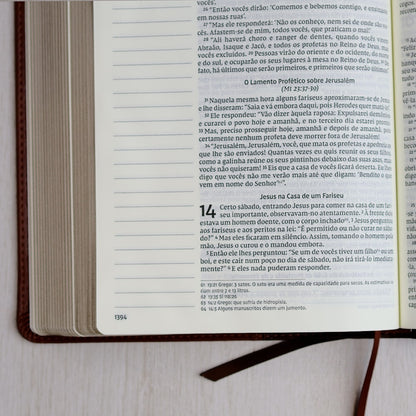 26 "Então vocês dirão: 'Comemos e bebemos contigo, e ensinaste
em nossas ruas'.
27 "Mas ele responderá: 'Não os conheço, nem sei de onde são vo-
cês. Afastem-se de mim, todos vocês, que praticam o mal!'
28 "Ali haverá choro e ranger de dentes, quando vocês virem
Abraão, Isaque e Jacó, e todos os profetas no Reino de Deus, mas
vocês excluídos. 29 Pessoas virão do oriente e do ocidente, do norte
e do sul, e ocuparão os seus lugares à mesa no Reino de Deus. 30 De
fato, há últimos que serão primeiros, e primeiros que serão últimos".
O Lamento Profético sobre Jerusalém
(Mt 23:37-39)
31 Naquela mesma hora alguns fariseus aproximaram-se de Jesus
e lhe disseram: "Saia e vá embora daqui, pois Herodes quer matá-lo".
32 Ele respondeu: "Vão dizer àquela raposa: Expulsarei demônios
e curarei o povo hoje e amanhã, e no terceiro dia estarei pronto.
33 Mas, preciso prosseguir hoje, amanhã e depois de amanhã, pois
certamente nenhum profeta deve morrer fora de Jerusalém!
34 "Jerusalém, Jerusalém, você, que mata os profetas e apedreja
os que lhe são enviados! Quantas vezes eu quis reunir os seus filhos,
como a galinha reúne os seus pintinhos debaixo das suas asas, mas
vocês não quiseram! 35 Eis que a casa de vocês ficará deserta. Eu lhes
digo que vocês não me verão mais até que digam: 'Bendito o que
vem em nome do Senhor'".
Jesus na Casa de um Fariseu
14 Certo sábado, entrando Jesus para comer na casa de um fari-
seu importante, observavam-no atentamente. 2 À frente dele
estava um homem doente, com o corpo inchado. 3 Jesus perguntou
aos fariseus e aos peritos na lei: "É permitido ou não curar no sába-
do?" 4 Mas eles ficaram em silêncio. Assim, tomando o homem pela
mão, Jesus o curou e o mandou embora.
5 Então ele lhes perguntou: "Se um de vocês tiver um filho ou um
boi, e este cair num poço no dia de sábado, não irá tirá-lo imediata-
mente?" 6 E eles nada puderam responder.
61 13:21 Grego: 3 satos. O sato era uma medida de capacidade para secos. As estimativas va-
riam entre 7 e 13 litros.
62 13:35 Sl 118:26
63 14:2 Grego: que sofria de hidropisia.
64 14:5 Alguns manuscritos dizem um jumento.
1394